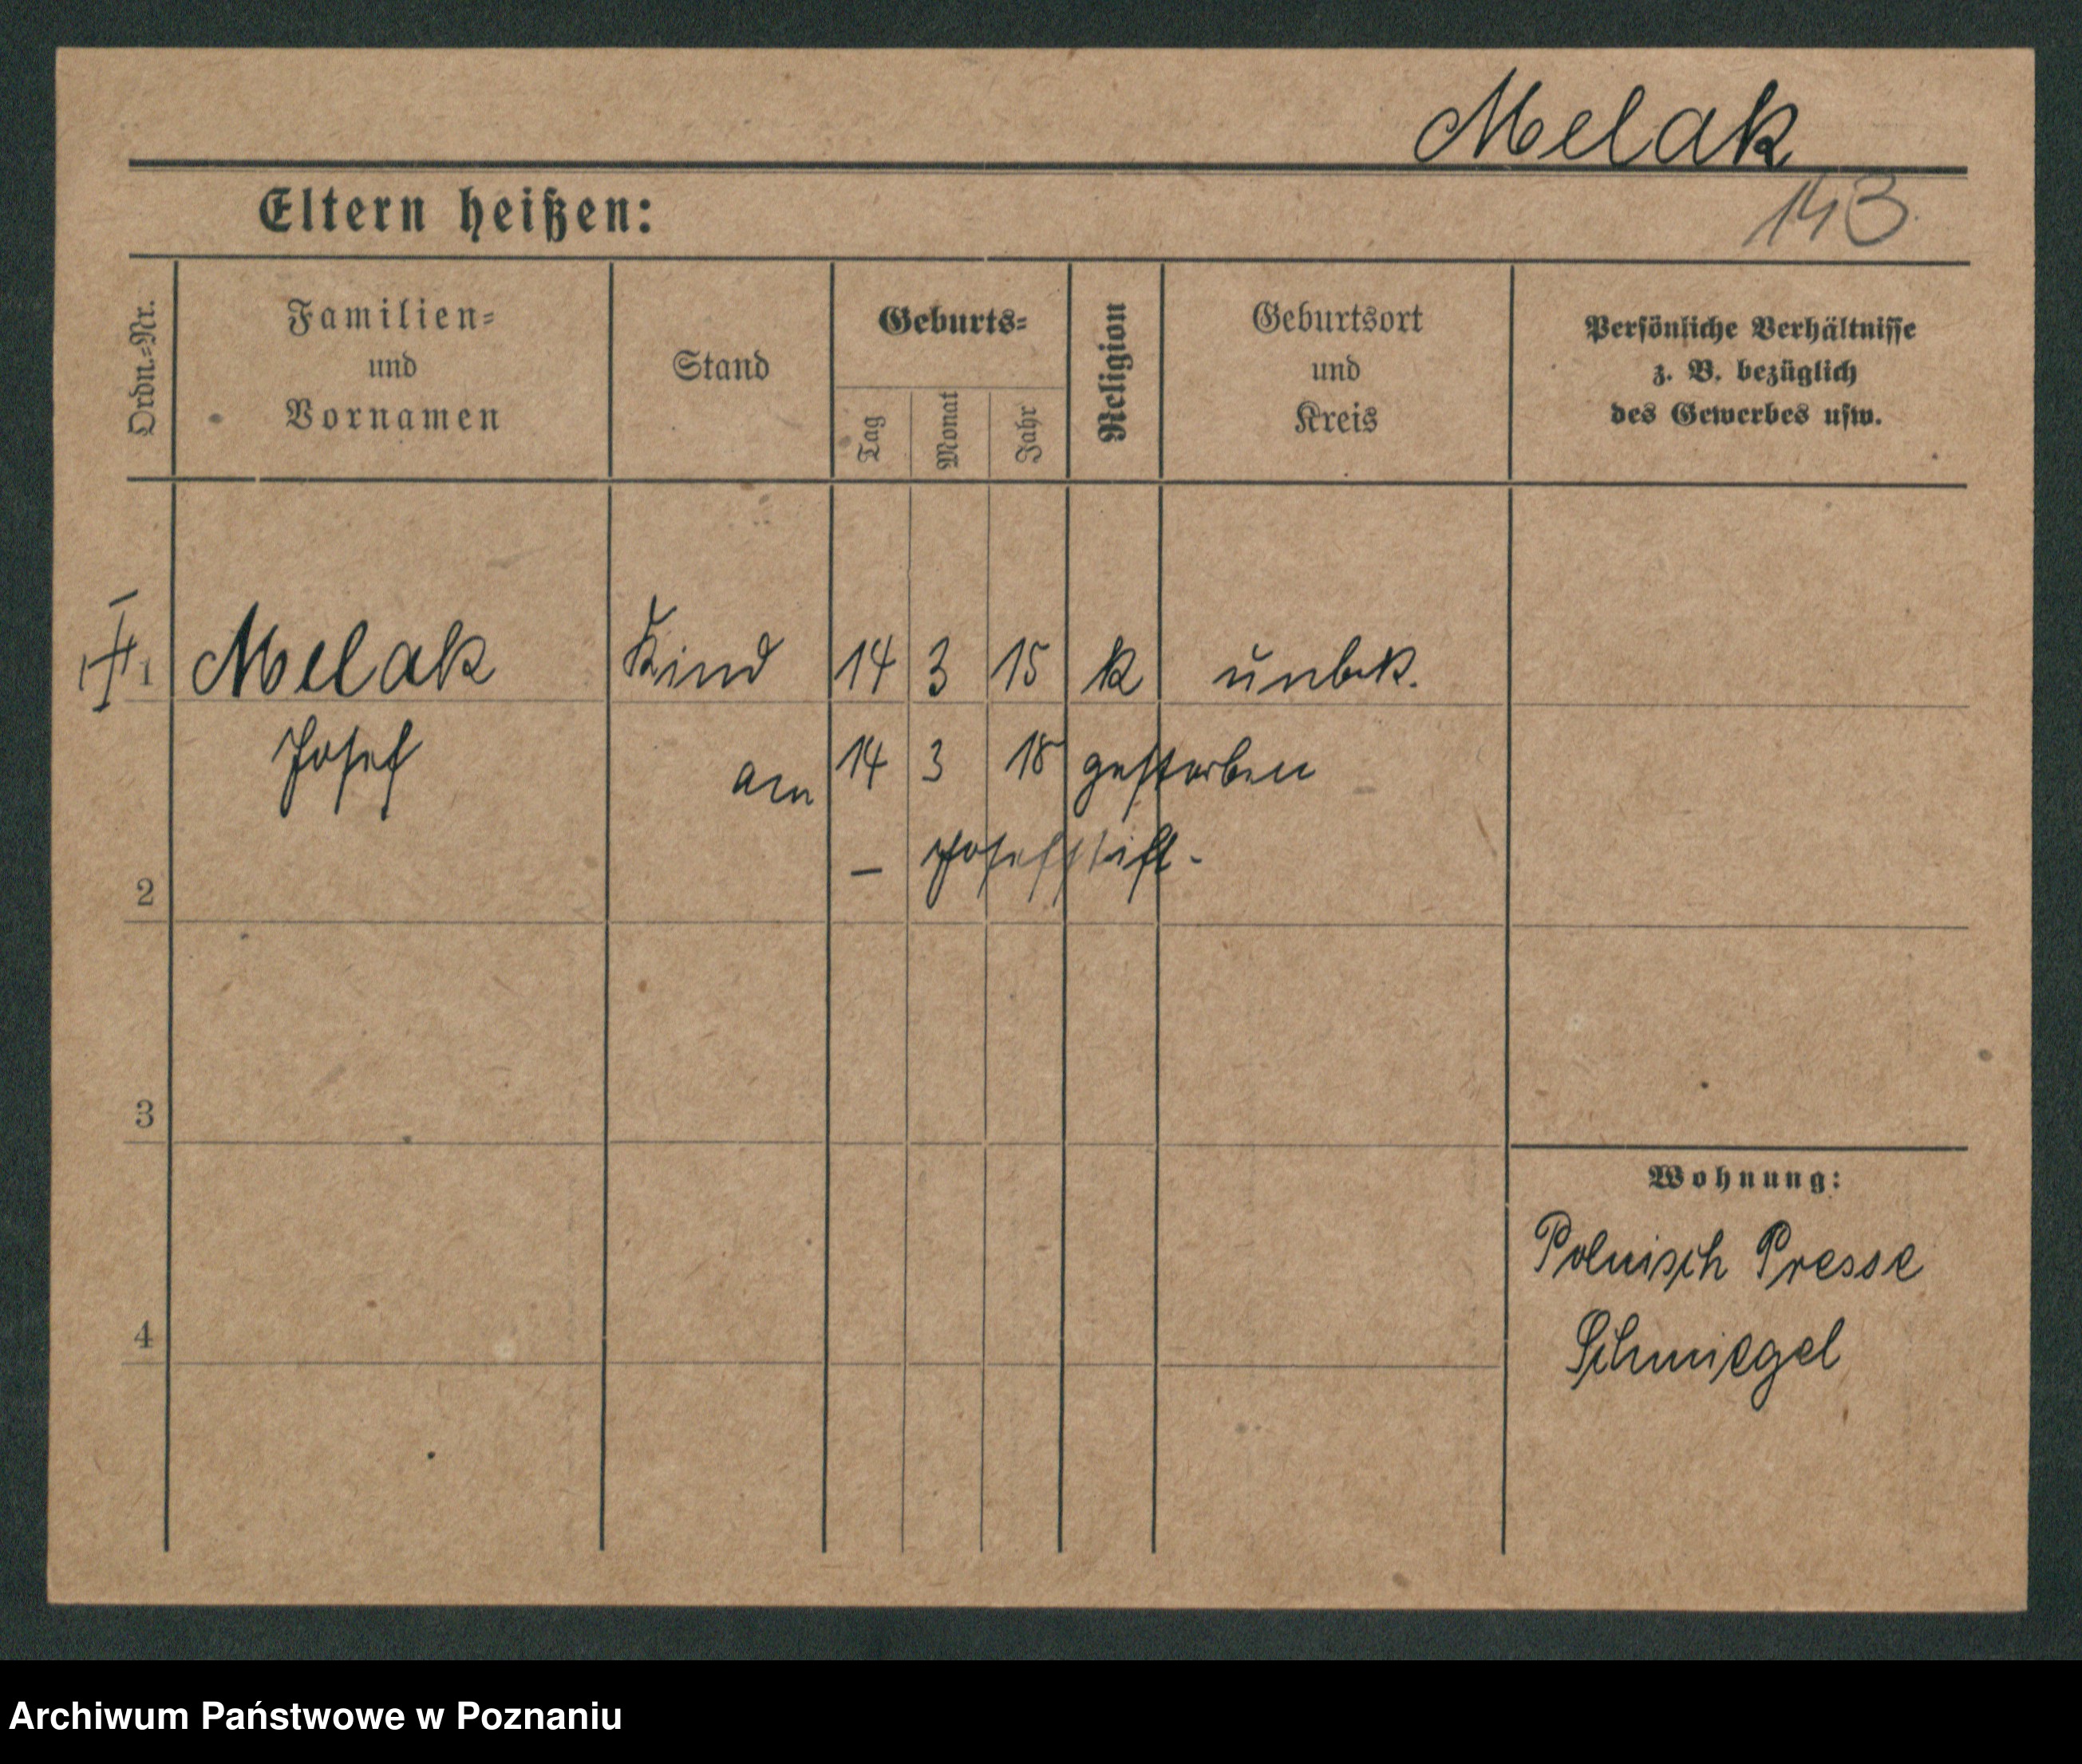 Melak
143
Eltern heißen:
Ordn.=Nr.
Familien=
und
Vornamen
Stand
Geburts=
Tag
Monat
Jahr
Religion
Geburtsort
und
Kreis
Persönliche Verhältnisse
z. B. bezüglich
des Gewerbes usw.
1 Melak Kind 14 3 15 k unbek.
Josef
am 14 3 18 gestorben
– Josefstift -
2
3
4
Wohnung:
Polnisch Presse
Schmiegel
Archiwum Państwowe w Poznaniu